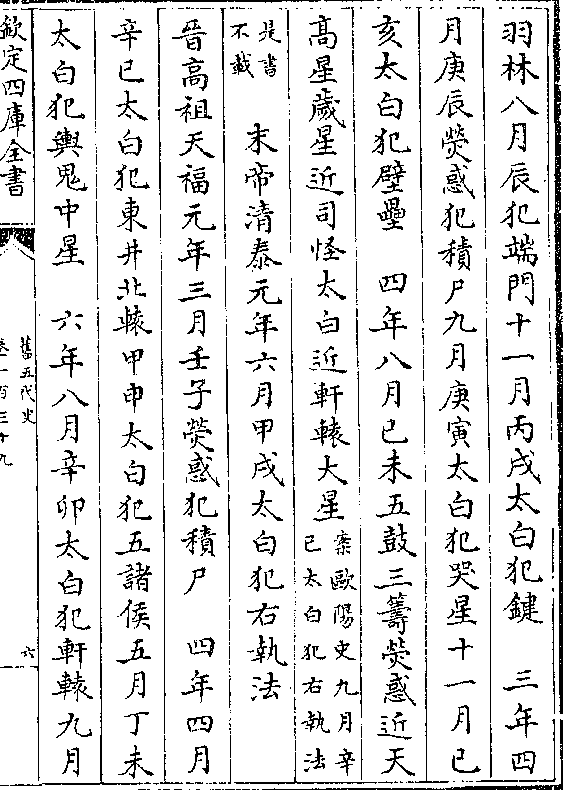 羽林八月辰犯端門十一月丙戌太白犯鍵　三年四
月庚辰熒惑犯積尸九月庚寅太白犯哭星十一月已
亥太白犯壁壘　四年八月已未五鼓三籌熒惑近天
高星歲星近司怪太白近軒轅大星案歐陽史九月辛
已太白犯右執法
是書
不載　末帝清泰元年六月甲戌太白犯右執法
晉高祖天福元年三月壬子熒惑犯積尸　四年四月
辛已太白犯東井北轅甲申太白犯五諸侯五月丁未
太白犯輿鬼中星　六年八月辛卯太白犯軒轅九月
欽定四庫全書
舊五代史
卷一百三十九
六